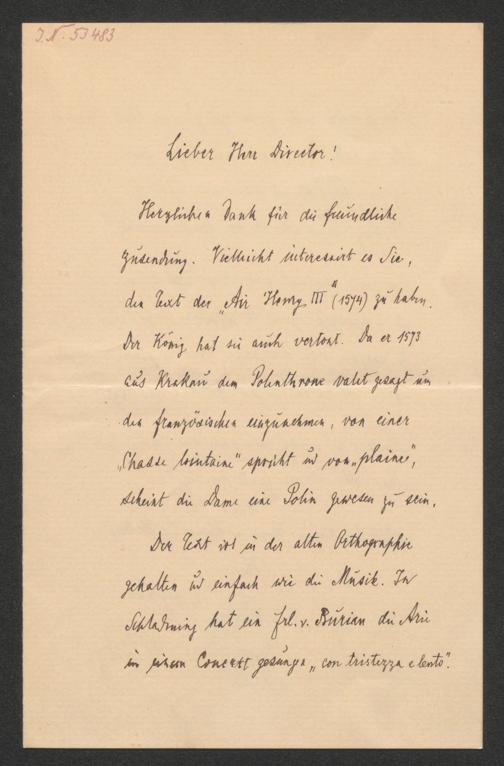 J.N. 53483
Lieber Herr Director!
Herzlichen Dank für die freundliche
Zusendung. Vielleicht interessirt es Sie,
den Text der „Air Henry III" (1574) zu haben.
Der König hat sie auch vertont. Da er 1573
aus Krakau dem Polenthrone valet gesagt um
den französischen einzunehmen, von einer
„Chasse lointaine" spricht und von „plaine",
scheint die Dame eine Polin gewesen zu sein.
Der Text ist in der alten Orthographie
gehalten und einfach wie die Musik. In
Schladming hat ein Frl. v. Burian die Arie
in einem Concert gesungen „con tristezza e lento".